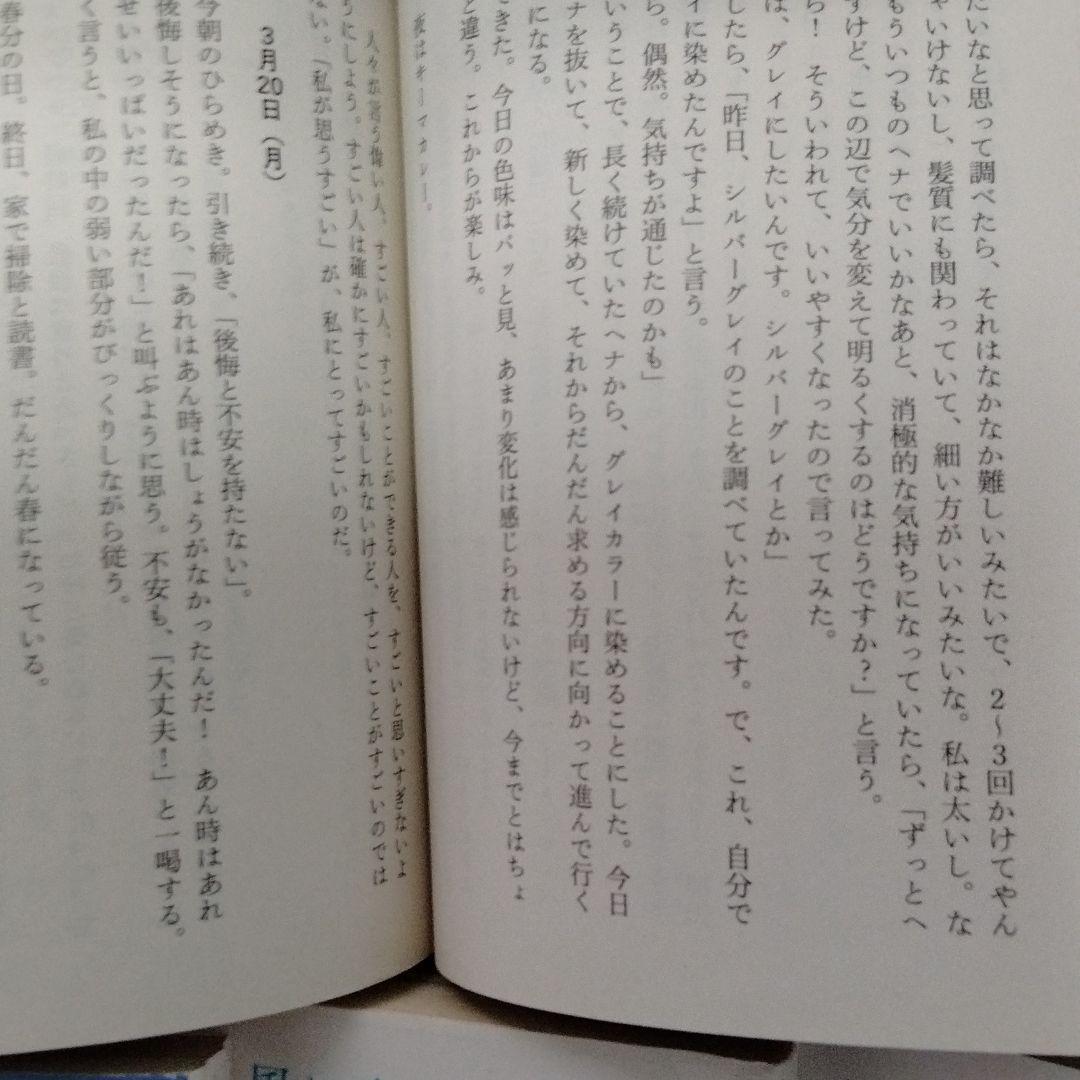 たいなと思って調べたら、それはなかなか難しいみたいで、2〜3回かけてやん
ゃいけないし、髪質にも関わっていて、細い方がいいみたいな。私は太いし。な
もういつものヘナでいいかなあと、消極的な気持ちになっていたら、「ずっとヘ
すけど、この辺で気分を変えて明るくするのはどうですか?」と言う。
ら! そういわれて、いいやすくなったので言ってみた。
は、グレイにしたいんです。シルバーグレイとか」
したら、「昨日、シルバーグレイのことを調べていたんです。で、これ、自分で
イに染めたんですよ」と言う。
ら。偶然。気持ちが通じたのかも」
いうことで、長く続けていたヘナから、グレイカラーに染めることにした。今日
ナを抜いて、新しく染めて、それからだんだん求める方向に向かって進んで行く
になる。
できた。今日の色味はパッと見、あまり変化は感じられないけど、今までとはちょ
と違う。これからが楽しみ。
夜はキーマカレー。
人々が言う偉い人、すごい人、すごいことができる人を、すごいと思いすぎないよ
うにしよう。すごい人は確かにすごいかもしれないけど、すごいことがすごいのでは
ない。「私が思うすごい」が、私にとってすごいのだ。
3月20日(月)
今朝のひらめき。引き続き、「後悔と不安を持たない」。
後悔しそうになったら、「あれはあん時はしょうがなかったんだ! あん時はあれ
せいいっぱいだったんだ!」と叫ぶように思う。不安も、「大丈夫!」と一喝する。
く言うと、私の中の弱い部分がびっくりしながら従う。
春分の日。終日、家で掃除と読書。だんだん春になっている。